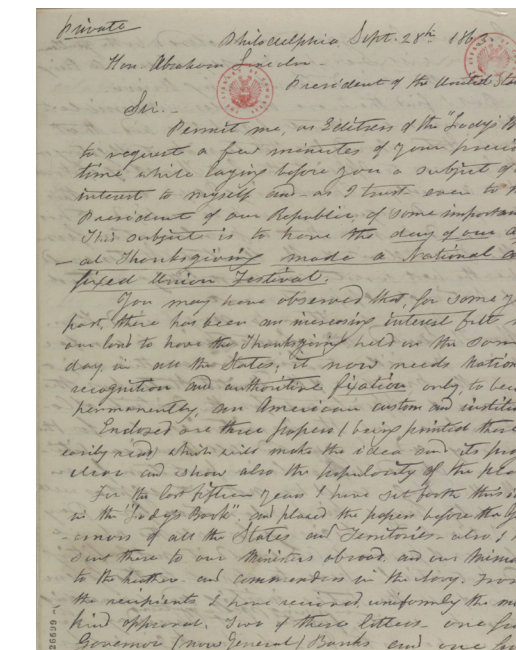 Private
Philadelphia, Sept. 28th 1863.
Hon. Abraham Lincoln -
President of the United Sta
Sir. -
Permit me, as Editress of the "Lady's B
to request a few minutes of your preci
time, while laying before you a subject of
interest to myself and - as I trust - even to
President of our Republic, of some importan
This subject is to have the day of our a
- al Thanksgiving made a National a
fixed Union Festival.
You may have observed that, for some y
past, there has been an increasing interest felt
our land to have the Thanksgiving held on the sam
day, in all the States; it now needs Nation
recognition and authoritive fixation, only, to bec
permanently, an American custom and institu
Enclosed are three papers (being printed these
easily read) which will make the idea and its pro
clear and show also the popularity of the pla
For the last fifteen years I have set forth this i
in the "Lady's Book", and placed the papers before the G
- ernors of all the States and Territories - also I
sent these to our Ministers abroad, and our Missio
to the heathen - and commanders in the Navy. From
the recipients I have received, uniformly the m
kind approval. Two of these letters, one fr
Governor (now General) Banks and one fr
26699